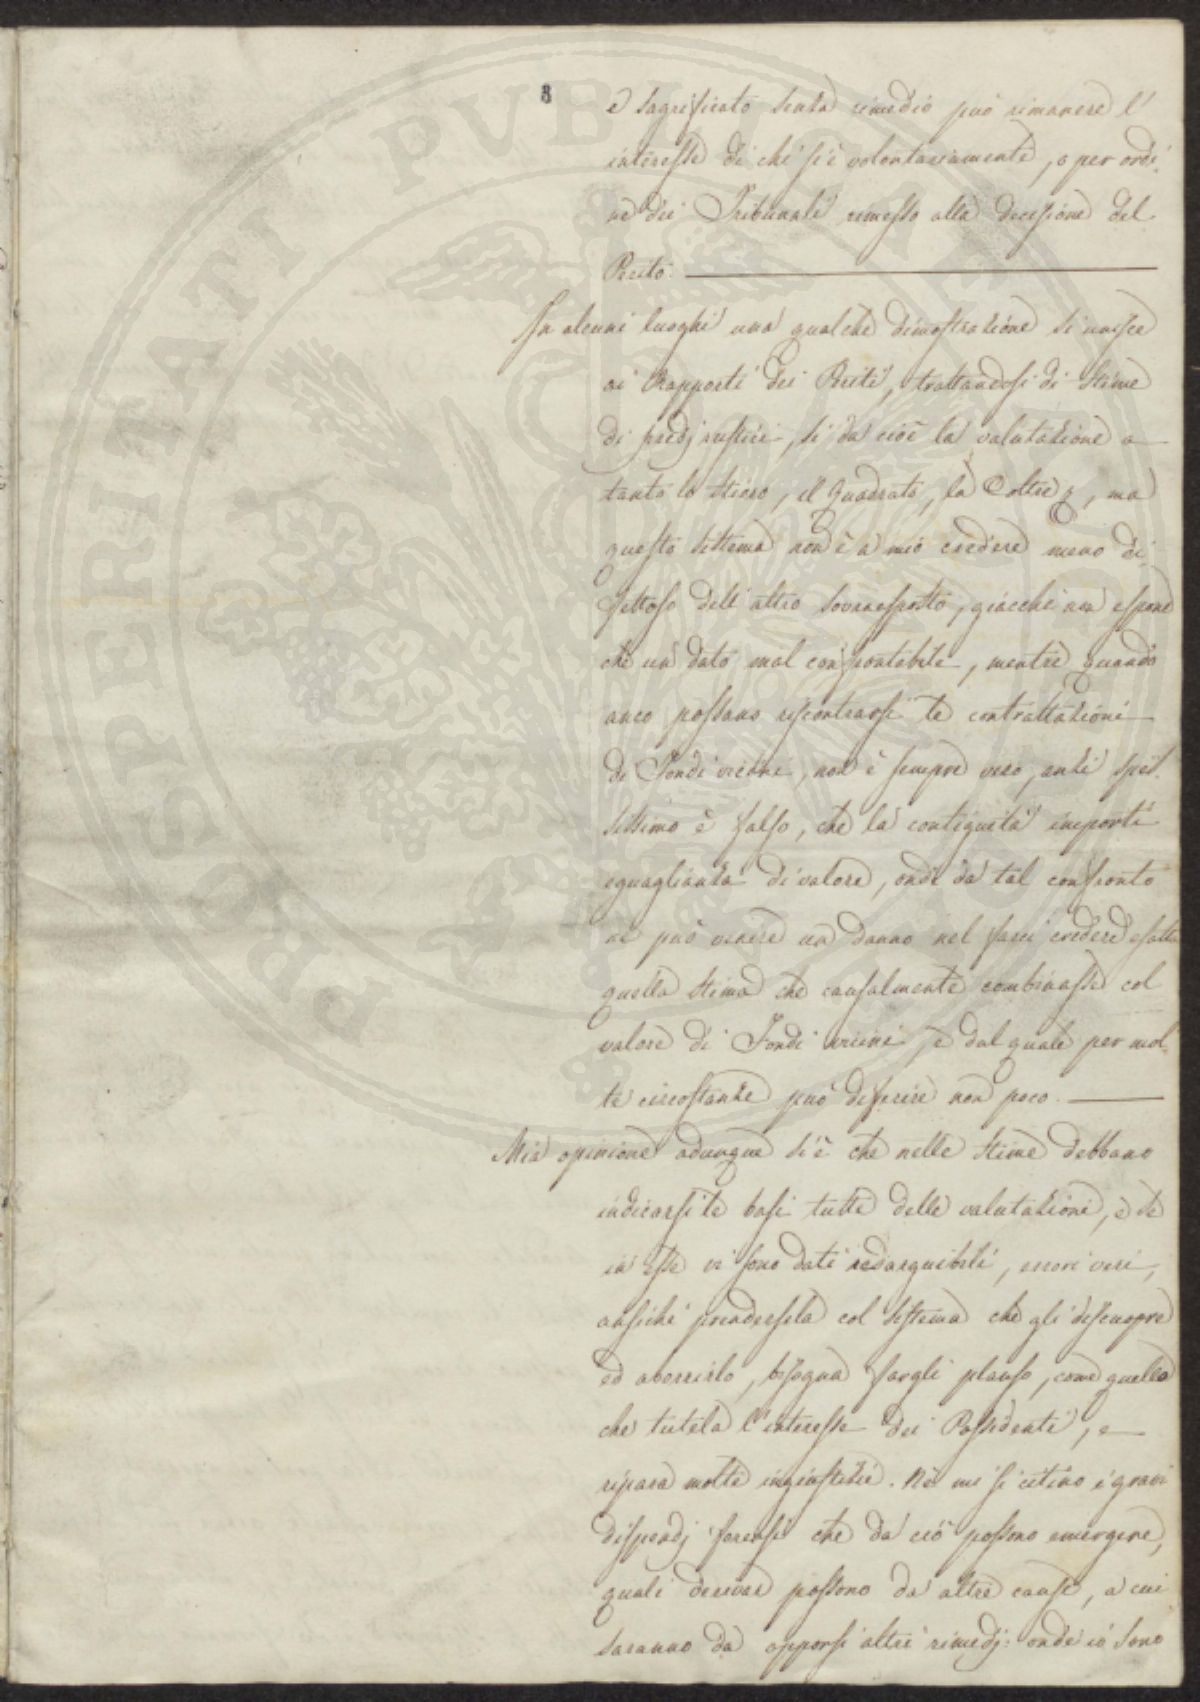 8
e sagrificato senza rimedio può rimanere l'
interesse di chi si è volontariamente, o per ordi-
ne dei Tribunali rimesso alla decisione del
Perito.
In alcuni luoghi una qualche dimostrazione si unisce
ai Rapporti dei Periti, trattandosi di Stime
di predj rustici, si dà cioè la valutazione a
tanto lo Stioro, il Quadrato, la Coltre, ma
questo sistema non è a mio credere meno di-
fettoso dell'altro sovraesposto, giacchè non espone
che un dato mal confrontabile, mentre quando
anco possano riscontrarsi le contrattazioni
di Fondi vicini, non è sempre vero, anzi spes-
sissimo è falso, che la contiguità importi
eguaglianza di valore, onde da tal confronto
ne può venire un danno nel farci credere esatta
quella Stima che causalmente combinasse col
valore di Fondi vicini, e dal quale per mol-
te circostanze può diferire non poco.
Mia opinione adunque si è che nelle Stime debbano
indicarsi le basi tutte delle valutazioni, e se
in Esse vi sono dati redarguibili, errori veri,
ansichè prendersela col sistema che gli discuopre
ed aborrirlo, bisogna fargli plauso, come quello
che tutela l'interesse dei Possidenti, e
ripara molte ingiustizie. Nè mi si citino i gravi
dispendj forensi che da ciò possono emergere,
quali derivar possono da altre cause, a cui
saranno da apporsi altri rimedj: onde io sono
PROSPERITATI PVBLICAE